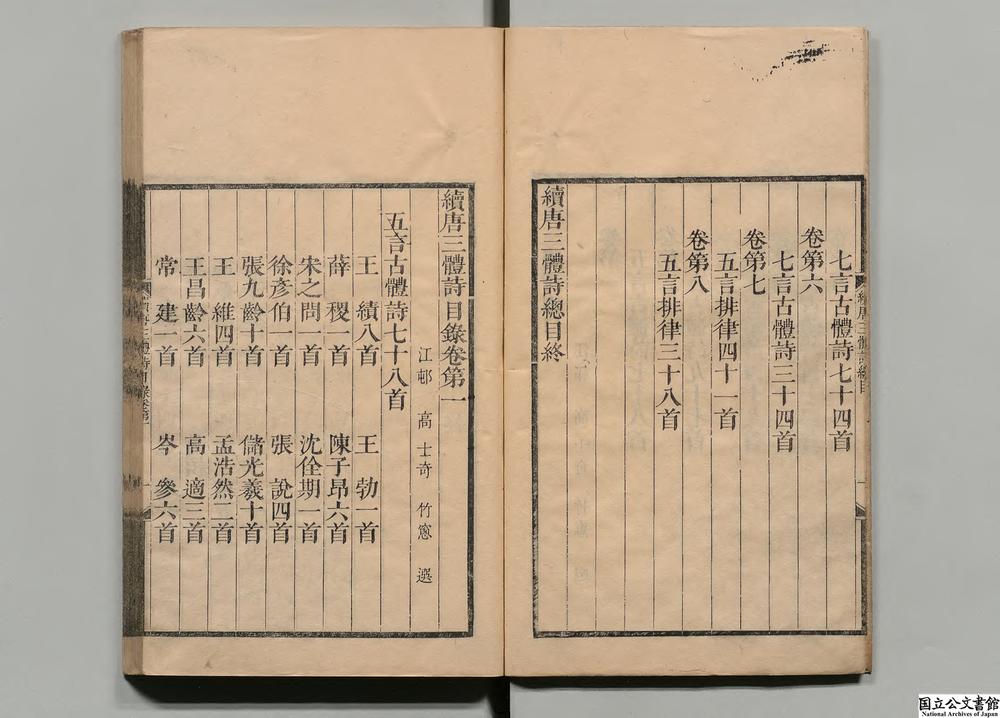 七言古體詩七十四首
卷第六
七言古體詩三十四首
卷第七
五言排律四十一首
卷第八
五言排律三十八首
續唐三體詩總目終
續唐三體詩目錄卷第一
江邨 高士奇 竹窻 選
五言古體詩七十八首
王 績八首 王 勃一首
薛 稷一首 陳子昂六首
宋之問一首 沈佺期一首
徐彥伯一首 張 說四首
張九齡十首 儲光羲十首
王 維四首 孟浩然二首
王昌齡六首 高 適三首
常 建一首 岑 參六首
国立公文書館
National Archives of Japan